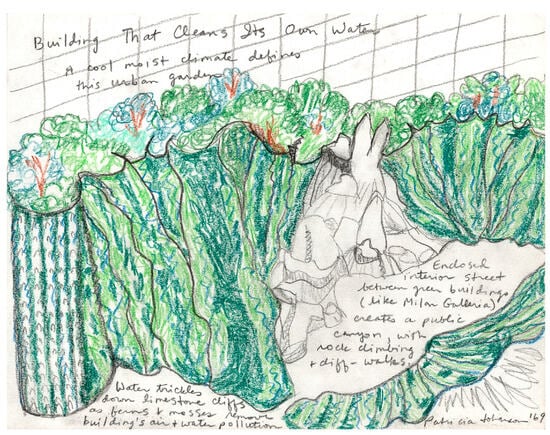 Building That Cleans Its Own Water
A cool moist climate defines
this urban garden
Enclosed
interior street
between green buildings
(like Milan Galleria)
creates a public
canyon with
rock climbing
+ diff- walks.
Water trickles
down limestone cliffs
as ferns + mosses remove
building's air + water pollution
Patricia Johanson '69